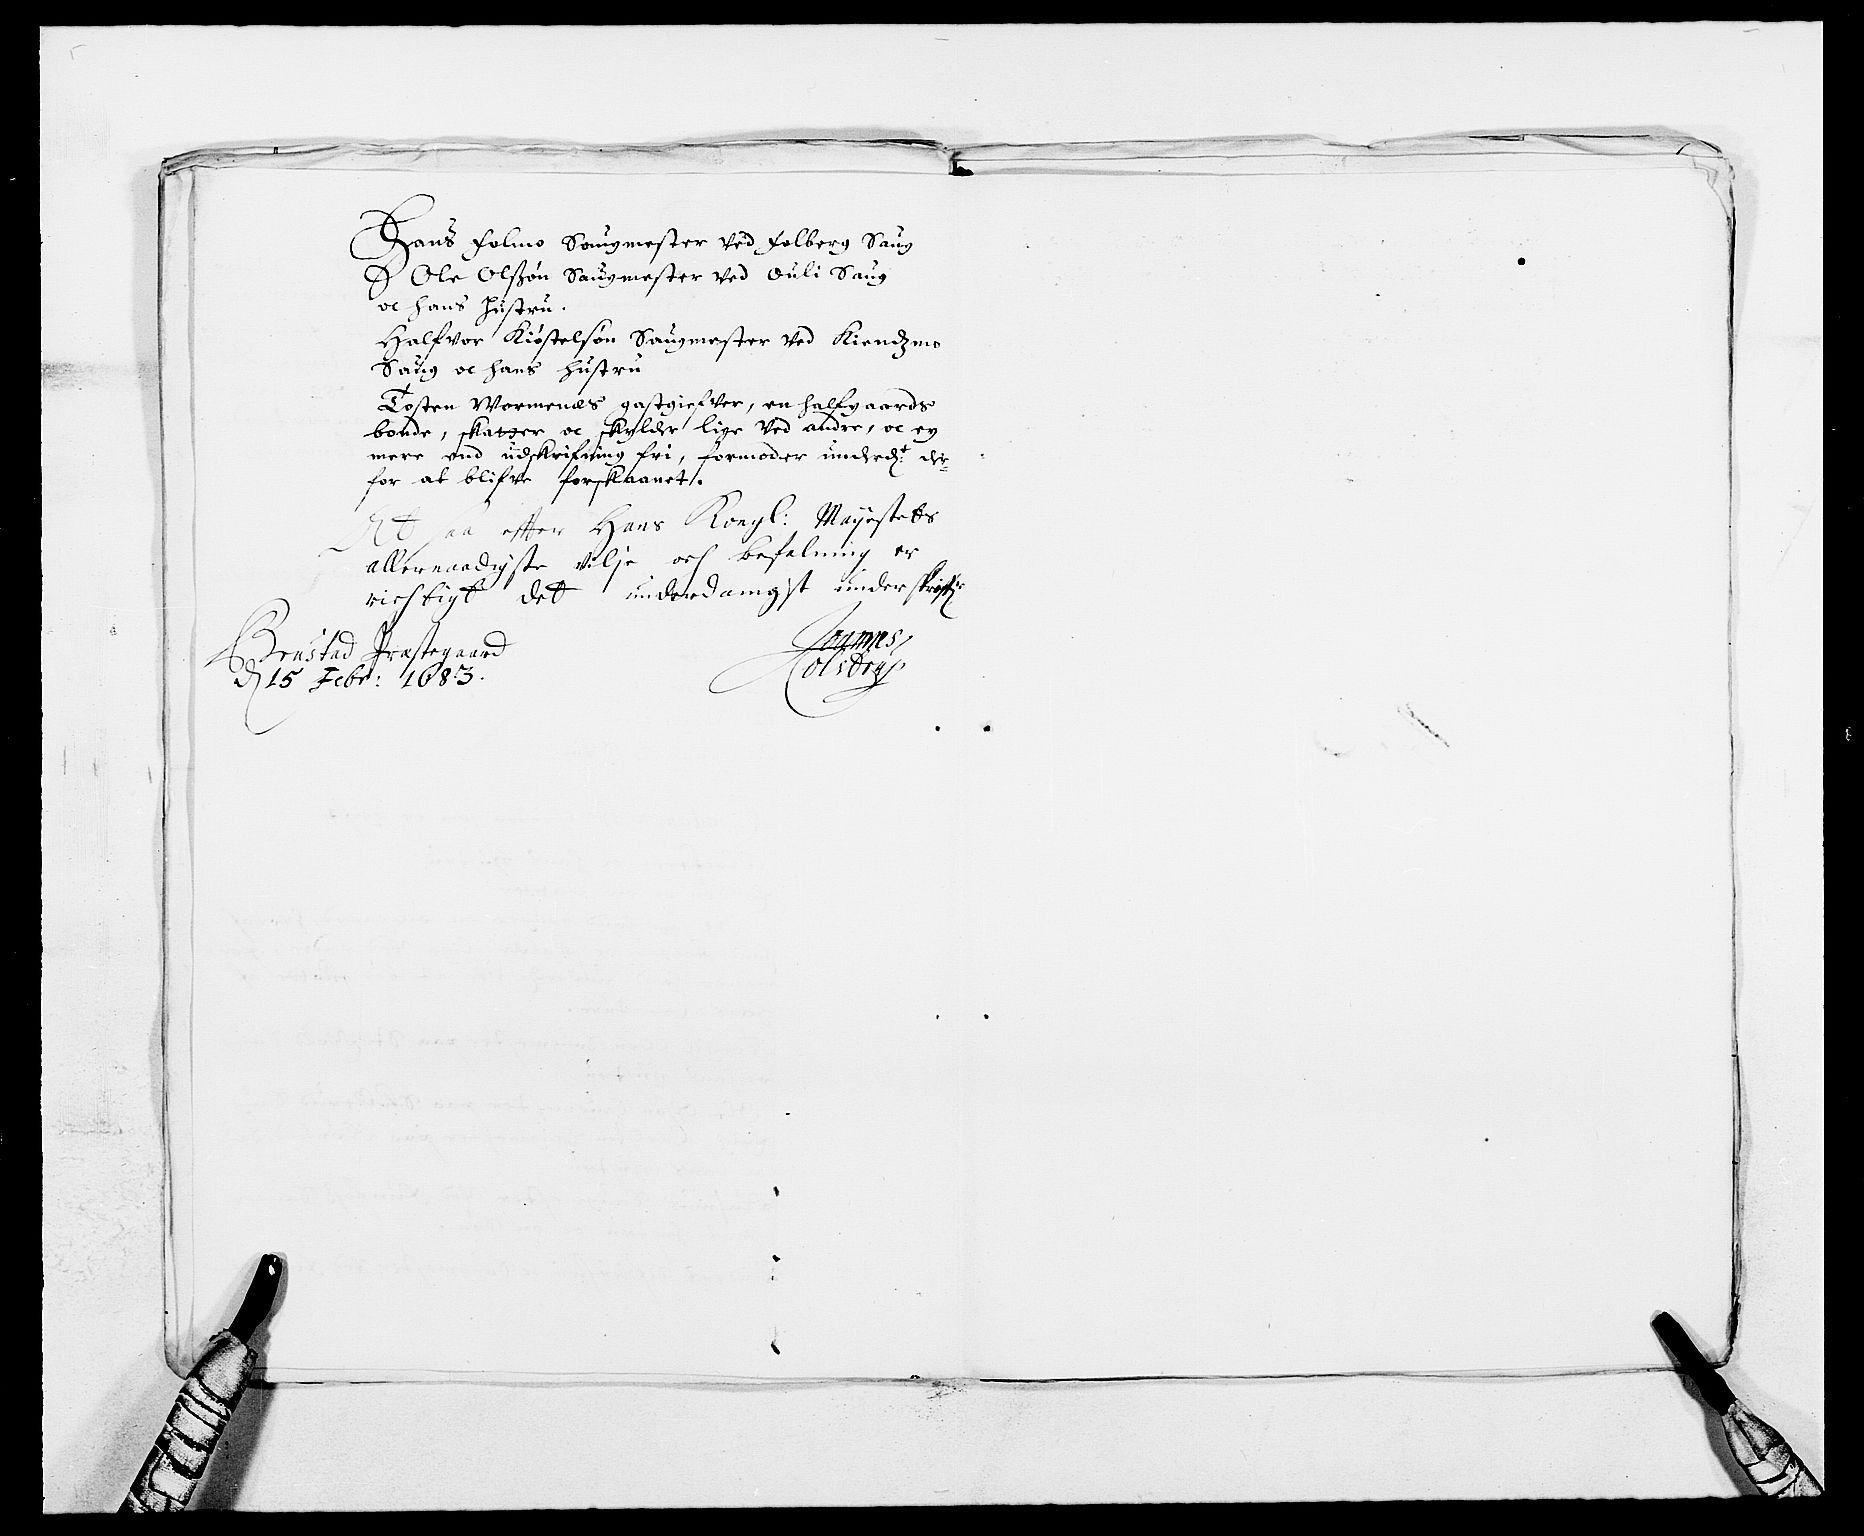 Hans Folmo Saugmester ved Folberg Saug
Ole Olsßøn Saugmester ved Ouli Saug
oc hans Hustru.
Halfvor Kiøstelsøn Saugmester ved Kiendzmo
Saug oc hans hustru
Tosten Wormenæs gastgiefver, en halfgaards
bonde, skatter oc skylder lige ved andre, oc ey
mere end udskrifning fri, formoder underd:t der-
for at blifve forskaanet.
At saa effter Hans Kongl: Mayestetts
allernaadigste vilje och befalning er
richtigt det underdanigst underskrifver
Præstegaard
d 15 Febr: 1683.
Joannes